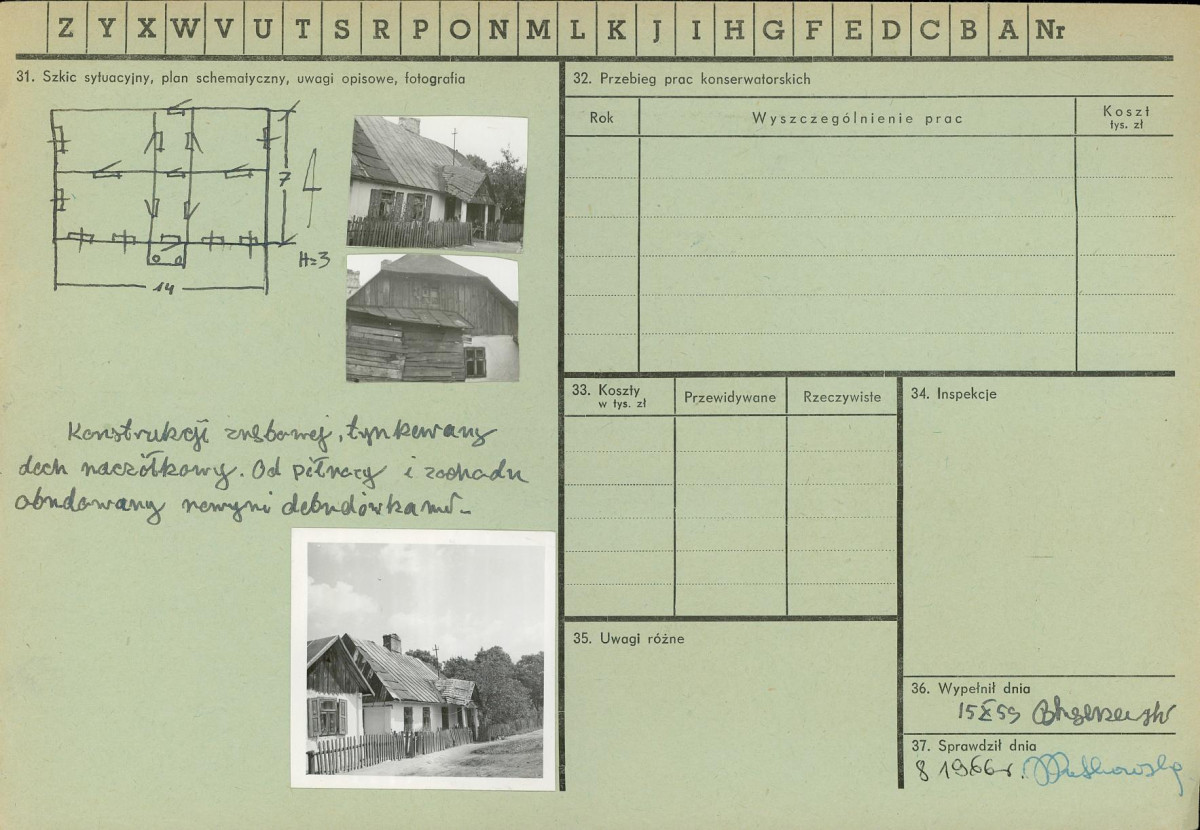 Z Y X W V U T S R P O N M L K J I H G F E D C B A Nr
31. Szkic sytuacyjny, plan schematyczny, uwagi opisowe, fotografia
7
H=3
14
Konstrukcji zrębowej, tynkowany
dach naczółkowy. Od północy i zachodu
obudowany nowymi dobudówkami.
32. Przebieg prac konserwatorskich
Rok
Wyszczególnienie prac
Koszt
tys. zł
33. Koszty
w tys. zł
Przewidywane
Rzeczywiste
34. Inspekcje
35. Uwagi różne
36. Wypełnił dnia
15 X 59
37. Sprawdził dnia
8 1966 r.